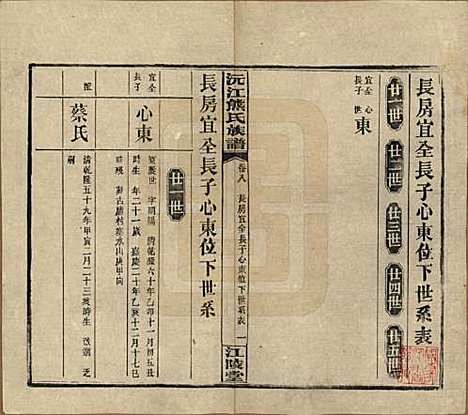 長房宜全長子心東位下世系表
廿一世
廿二世
廿三世
廿四世
廿五世
宜全長子
心東
沅江熊氏族譜
卷八
長房宜全長子心東位下世系表
一
江陵堂
長房宜全長子心東位下世系
廿二世
宜全長子
心東
字明陽
清乾隆六十年乙卯十一月初五
時生
年二十一歲
嘉慶二十年乙亥十二月十七
時歿
山庚甲向
配
蔡氏
清乾隆五十九年甲寅二月二十三
時生